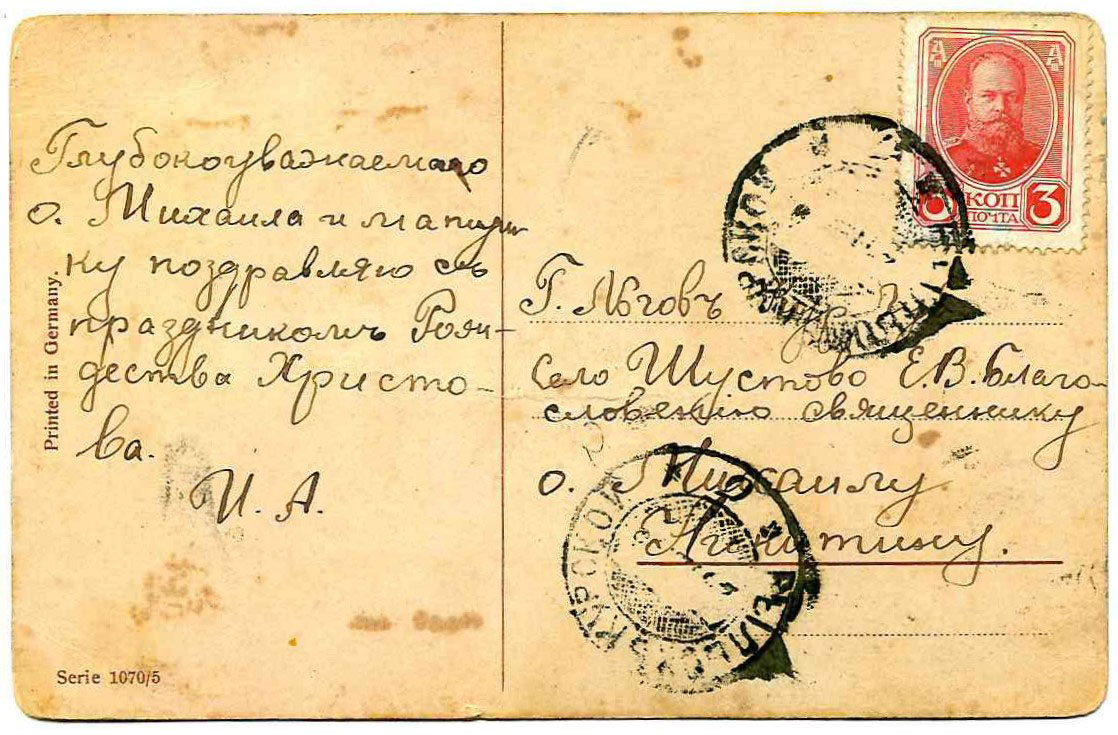 Глубокоуважаемаго
о. Михаила и матуш
ку поздравляю съ
праздникомъ Рож-
дества Христо-
ва.
И. А.
Printed in Germany.
Serie 1070/5
КОП
ПОЧТА
3
Г. Льговъ
село Шустово Е.В. Благо-
словенію священнику
о. Михаилу
Никитину.
КУРСКОЙ
РЫЛЬСКЪ КУРСКОЙ